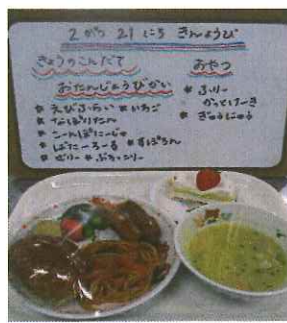 2 がつ 21 にち きんようび
きょうのこんだて
おたんじょうびかい
* えびふらい * いちご
* なぽりたん
* こーんぽたーじゅ
* ばたーろーる * すぽちゃん
* ゼリー * ぶろっこりー
おやつ
* ふりー
かっとけーき
* ぎゅうにゅう